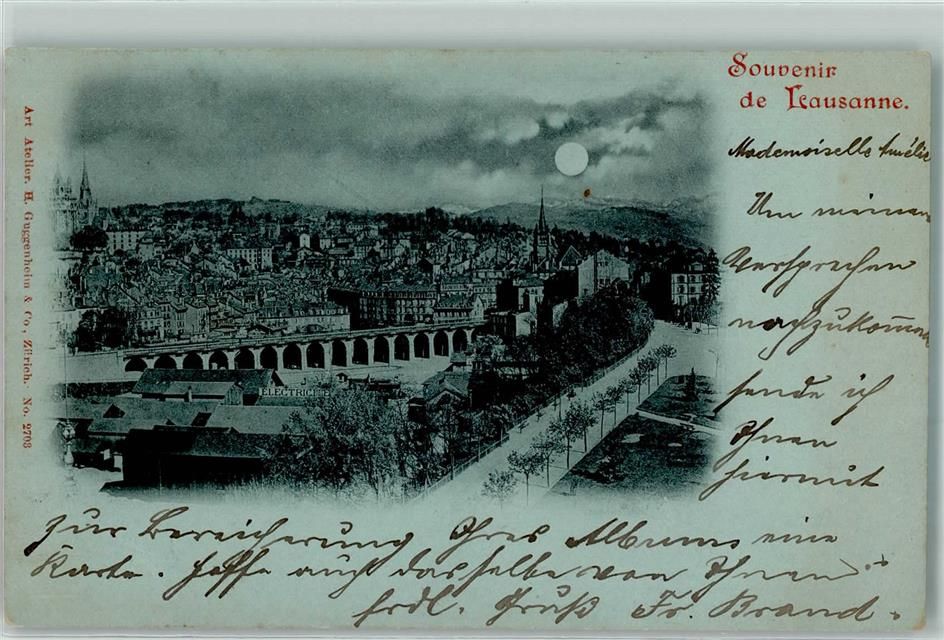 Souvenir
de Lausanne.
Art Atelier. H. Guggenheim & Co., Zürich. No. 2703
ELECTRICITE
Mademoiselle Amélie
Um meinem
Versprechen
nachzukommen
sende ich
Ihnen
hiermit
zur Bereicherung Ihres Albums eine
Karte. Hoffe auch dasselbe von Ihnen.
frdl. Gruß Fr. Brand.